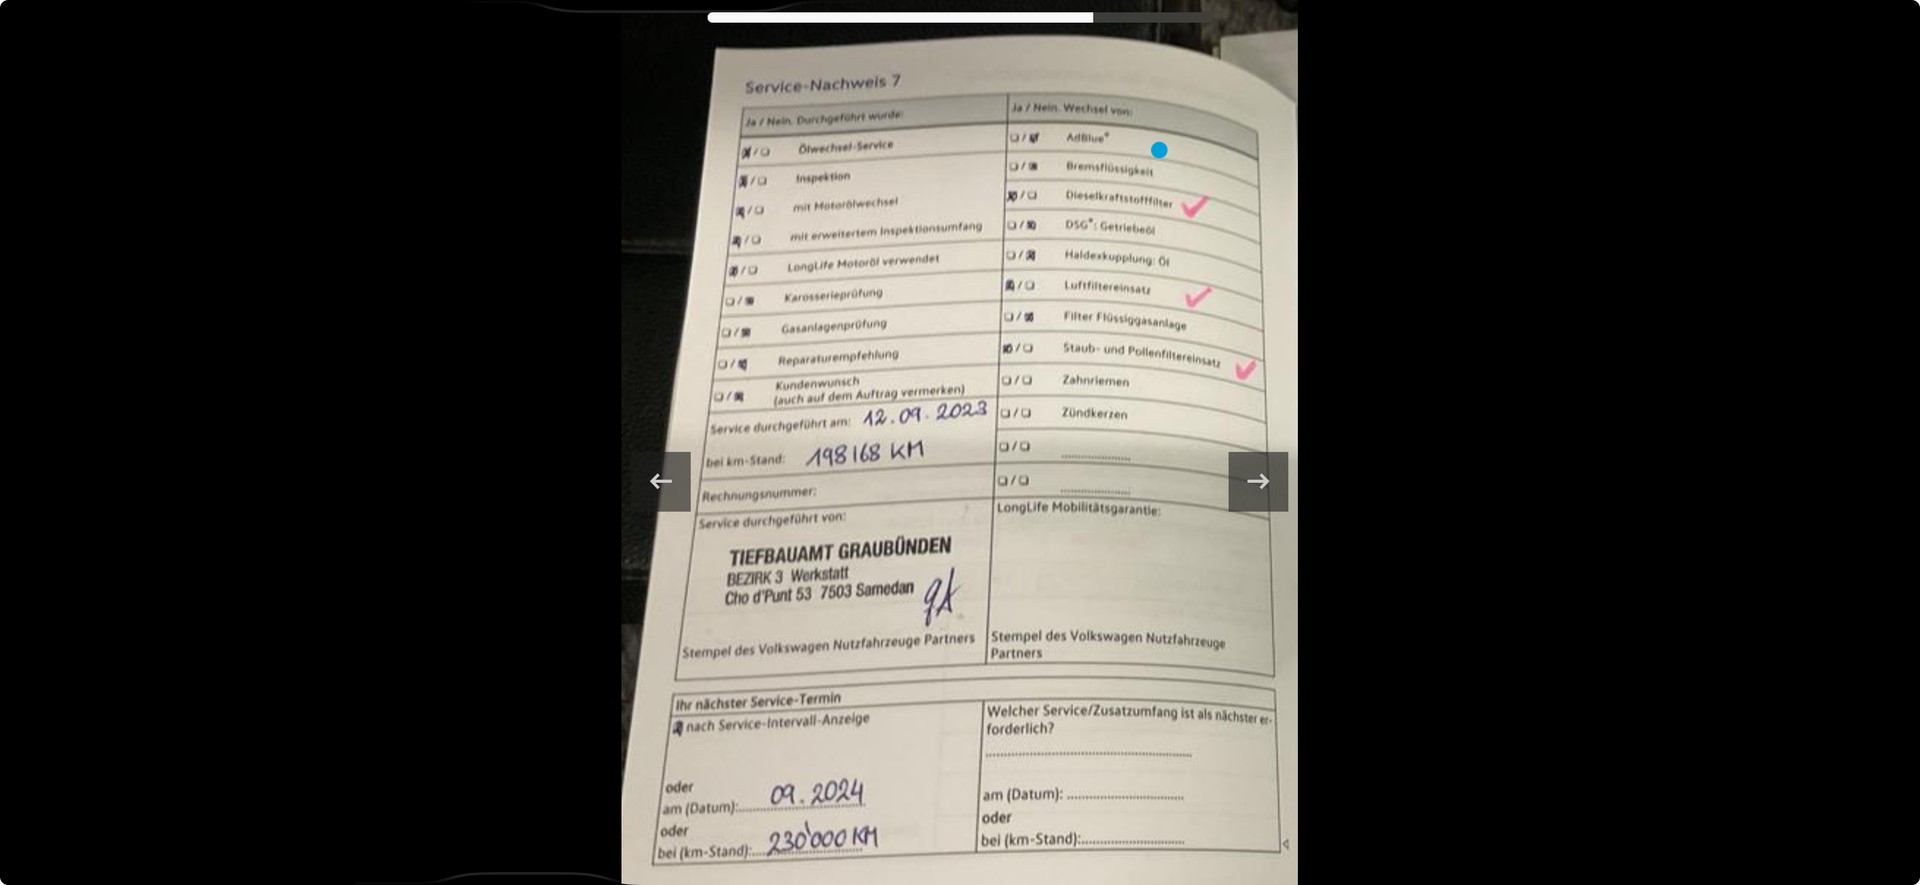 Service-Nachweis 7
Ja / Nein. Durchgeführt wurde:
Ölwechsel-Service
Inspektion
mit Motorölwechsel
mit erweitertem Inspektionsumfang
LongLife Motoröl verwendet
Karosserieprüfung
Gasanlagenprüfung
Reparaturempfehlung
Kundenwunsch
(auch auf dem Auftrag vermerken)
Service durchgeführt am: 12.09.2023
bei km-Stand: 198168 KM
Rechnungsnummer:
Service durchgeführt von:
TIEFBAUAMT GRAUBÜNDEN
BEZIRK 3 Werkstatt
Cho d'Punt 53 7503 Samedan
Stempel des Volkswagen Nutzfahrzeuge Partners
Ja / Nein. Wechsel von:
AdBlue®
Bremsflüssigkeit
Dieselkraftstofffilter
DSG®: Getriebeöl
Haldexkupplung: Öl
Luftfiltereinsatz
Filter Flüssiggasanlage
Staub- und Pollenfiltereinsatz
Zahnriemen
Zündkerzen
LongLife Mobilitätsgarantie:
Stempel des Volkswagen Nutzfahrzeuge
Partners
Ihr nächster Service-Termin
nach Service-Intervall-Anzeige
oder
am (Datum): 09.2024
oder
bei (km-Stand): 230'000 KM
Welcher Service/Zusatzumfang ist als nächster er-
forderlich?
am (Datum):
oder
bei (km-Stand):